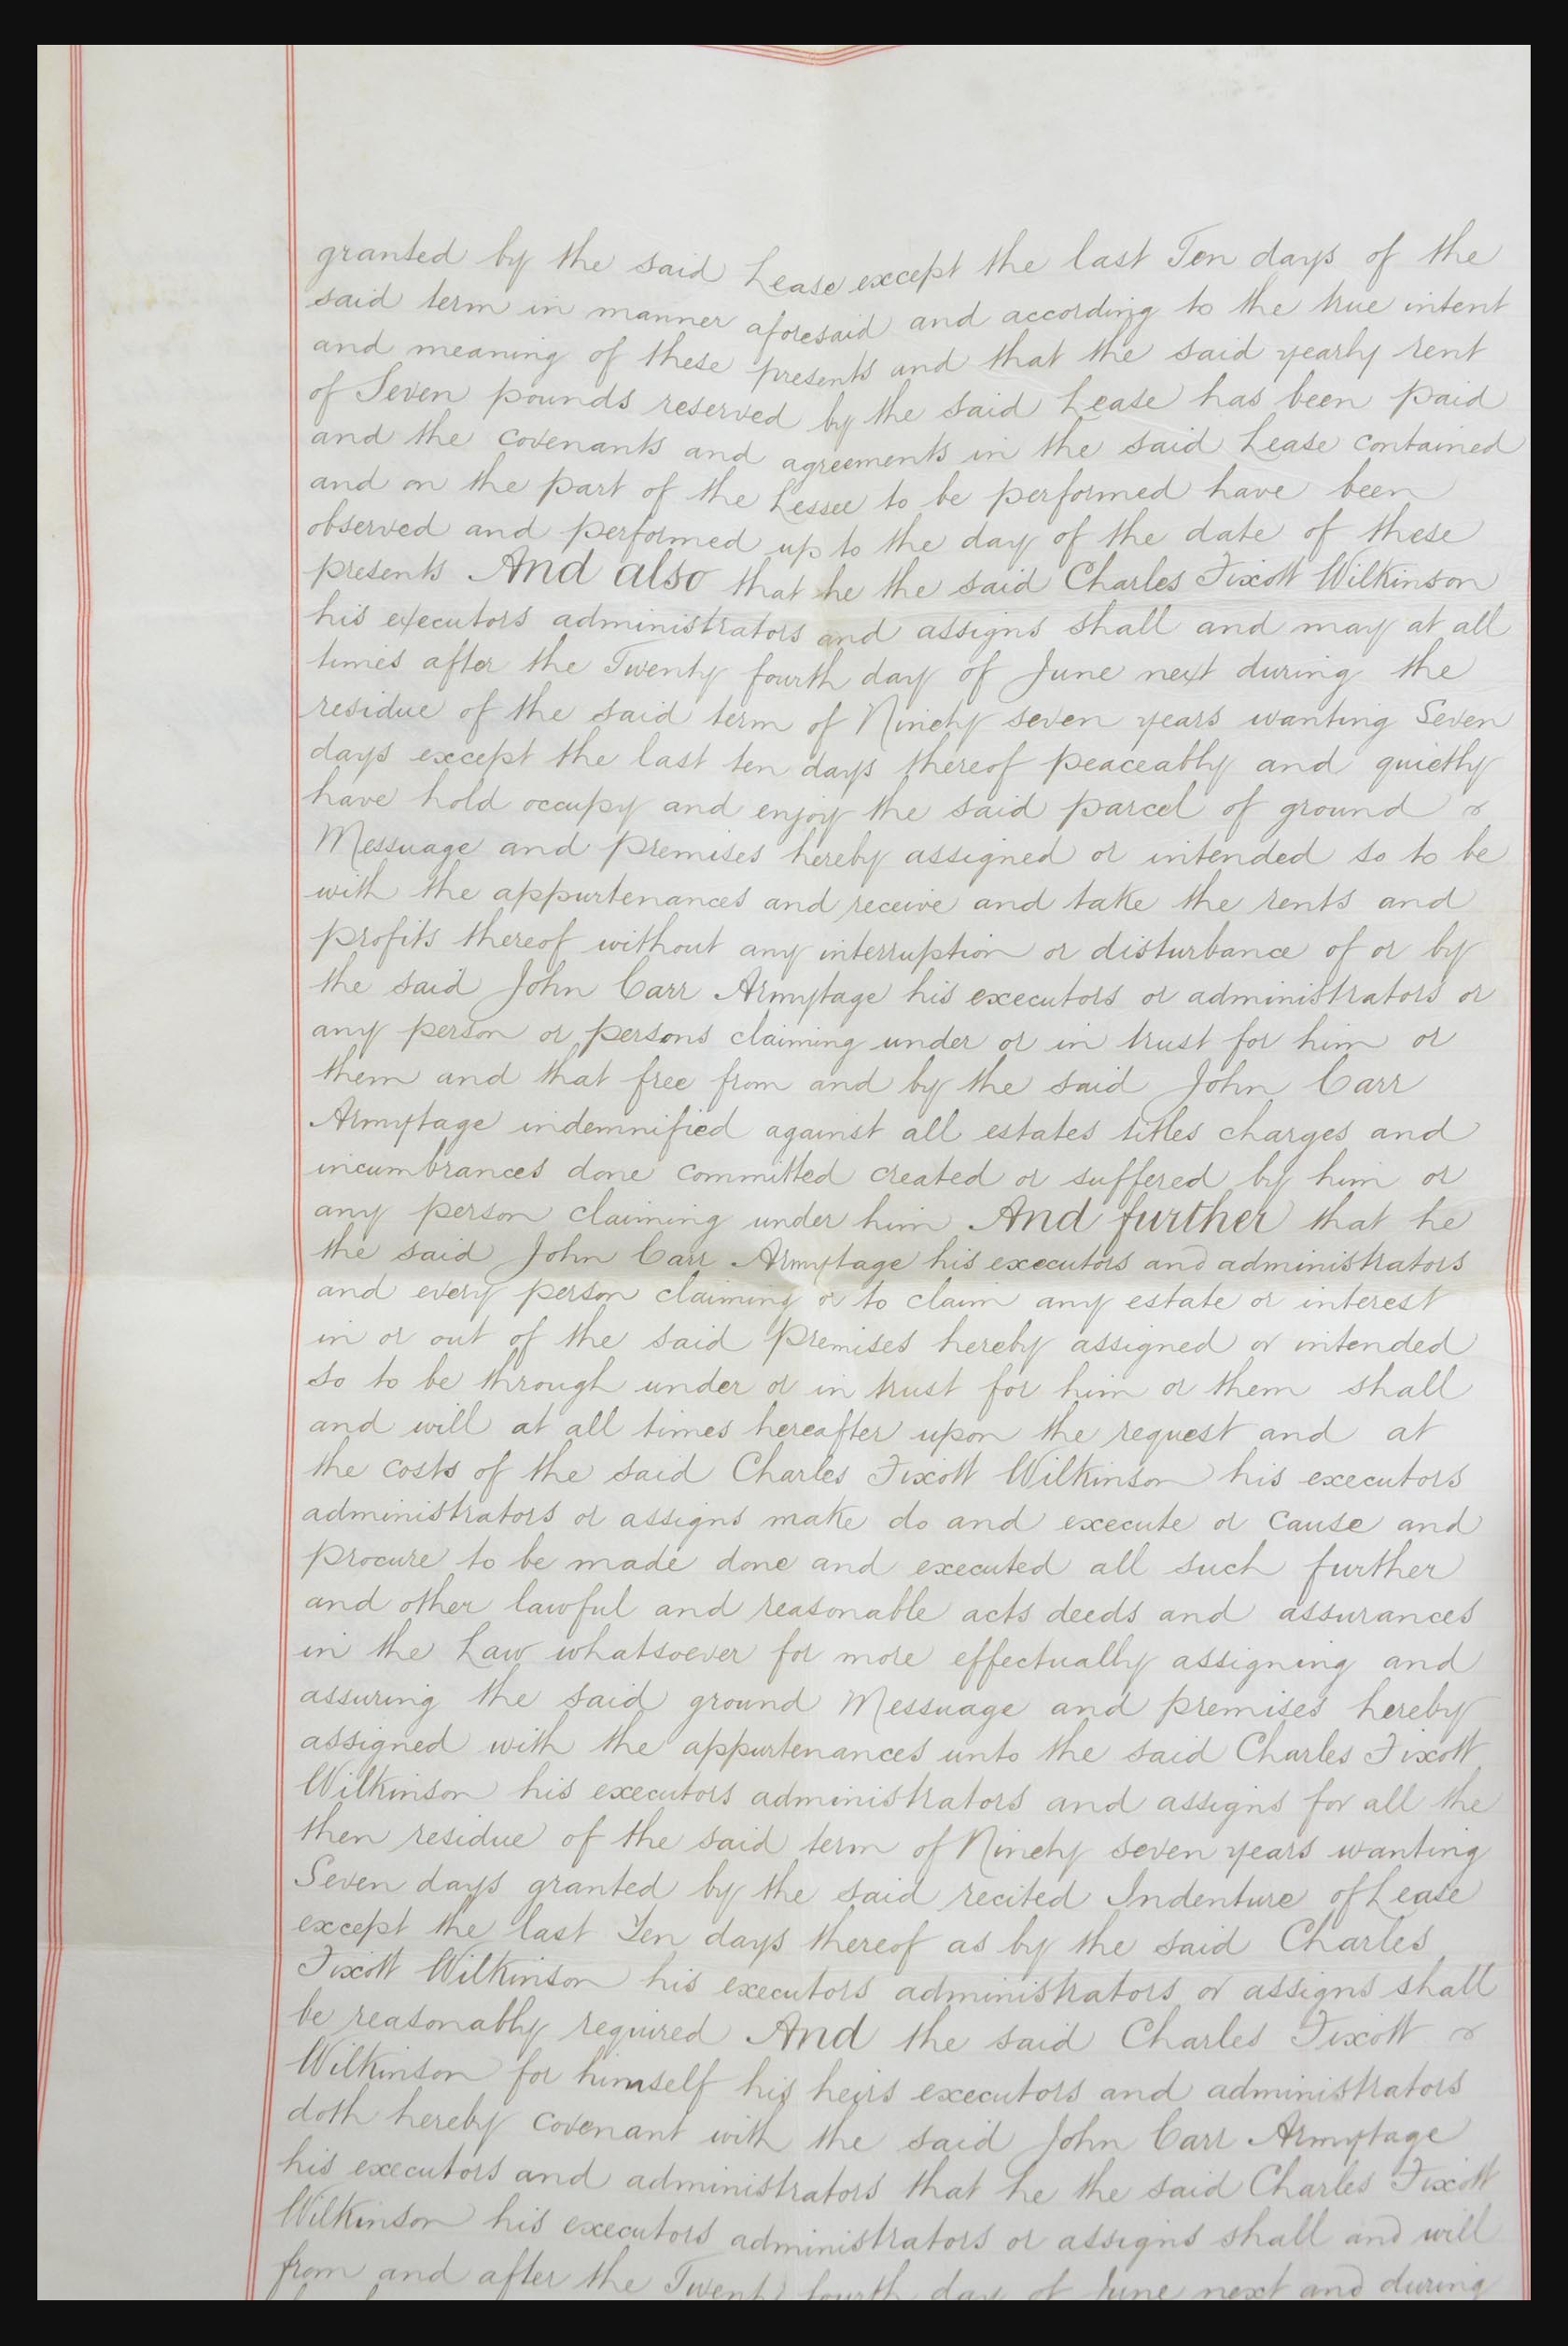 granted by the said Lease except the last Ten days of the
said term in manner aforesaid and according to the true intent
and meaning of these presents and that the said yearly rent
of Seven pounds reserved by the said Lease has been paid
and the covenants and agreements in the said Lease contained
and on the part of the Lessee to be performed have been
observed and performed up to the day of the date of these
presents And also that he the said Charles Fixott Wilkinson
his executors administrators and assigns shall and may at all
times after the Twenty fourth day of June next during the
residue of the said term of Ninety seven years wanting Seven
days except the last ten days thereof peaceably and quietly
have hold occupy and enjoy the said parcel of ground &
Messuage and premises hereby assigned or intended so to be
with the appurtenances and receive and take the rents and
profits thereof without any interruption or disturbance of or by
the said John Carr Armytage his executors or administrators or
any person or persons claiming under or in trust for him or
them and that free from and by the said John Carr
Armytage indemnified against all estates titles charges and
incumbrances done committed created or suffered by him or
any person claiming under him And further that he
the said John Carr Armytage his executors and administrators
and every person claiming or to claim any estate or interest
in or out of the said premises hereby assigned or intended
so to be through under or in trust for him or them shall
and will at all times hereafter upon the request and at
the costs of the said Charles Fixott Wilkinson his executors
administrators or assigns make do and execute or cause and
procure to be made done and executed all such further
and other lawful and reasonable acts deeds and assurances
in the Law whatsoever for more effectually assigning and
assuring the said ground Messuage and premises hereby
assigned with the appurtenances unto the said Charles Fixott
Wilkinson his executors administrators and assigns for all the
then residue of the said term of Ninety seven years wanting
Seven days granted by the said recited Indenture of Lease
except the last Ten days thereof as by the said Charles
Fixott Wilkinson his executors administrators or assigns shall
be reasonably required And the said Charles Fixott &
Wilkinson for himself his heirs executors and administrators
doth hereby covenant with the said John Carr Armytage
his executors and administrators that he the said Charles Fixott
Wilkinson his executors administrators or assigns shall and will
from and after the Twenty fourth day of June next and during